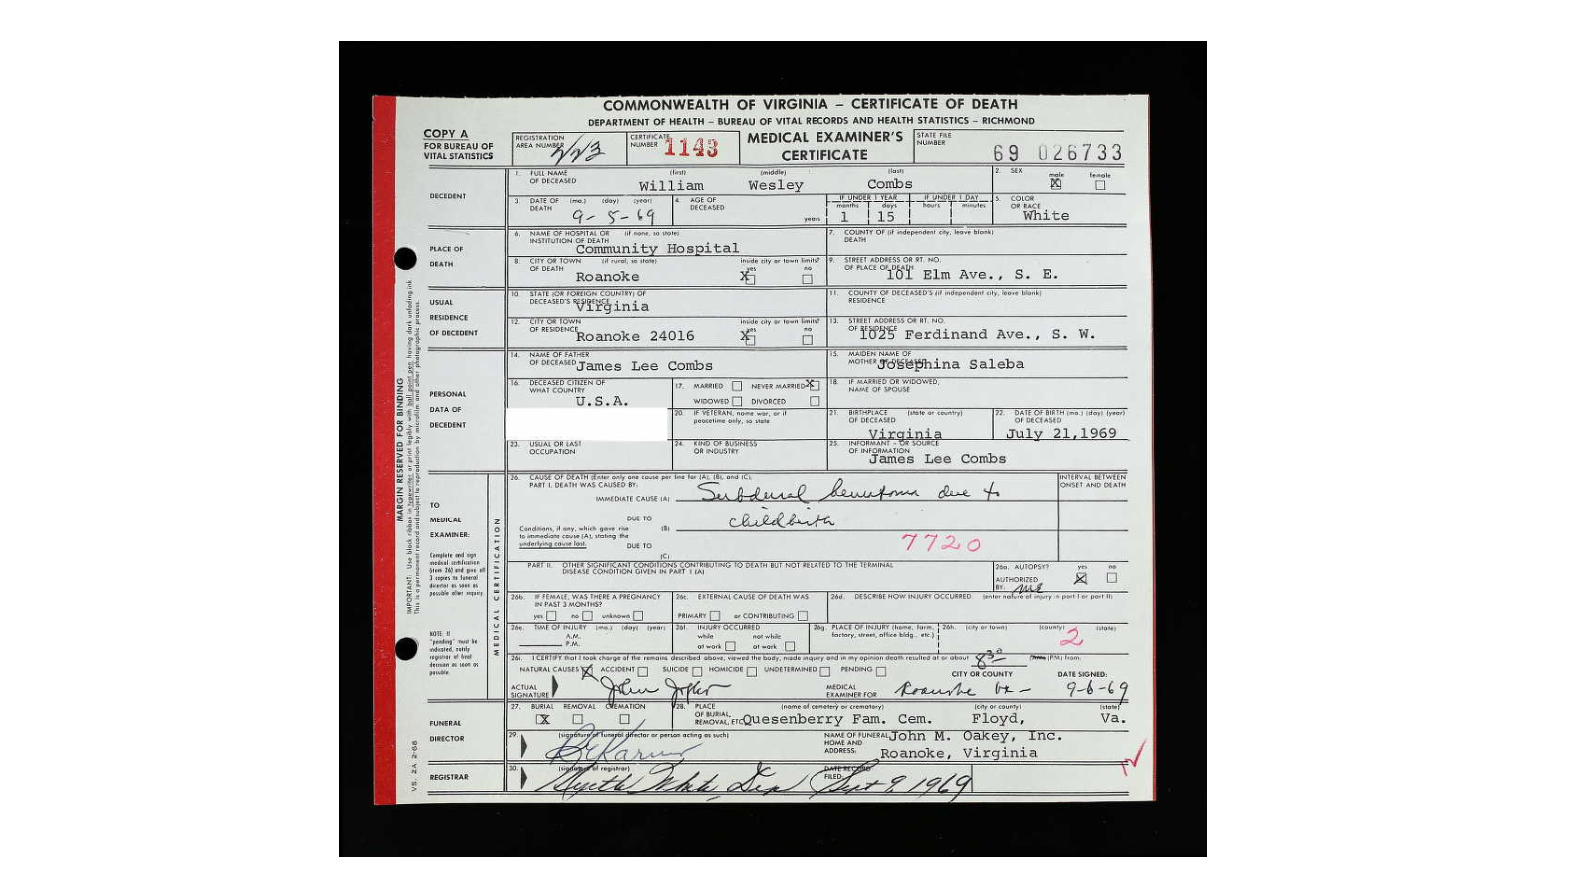 COMMONWEALTH OF VIRGINIA – CERTIFICATE OF DEATH
DEPARTMENT OF HEALTH – BUREAU OF VITAL RECORDS AND HEALTH STATISTICS – RICHMOND
COPY A
FOR BUREAU OF
VITAL STATISTICS
REGISTRATION
AREA NUMBER 223
CERTIFICATE
NUMBER 1143
MEDICAL EXAMINER'S
CERTIFICATE
STATE FILE
NUMBER
69 026733
DECEDENT
1. FULL NAME OF DECEASED (first) (middle) (last)
William Wesley Combs
2. SEX male female
X
3. DATE OF DEATH (mo.) (day) (year)
9-5-69
4. AGE OF DECEASED
years
IF UNDER 1 YEAR months days
1 15
IF UNDER 1 DAY hours minutes
5. COLOR OR RACE
White
PLACE OF
DEATH
6. NAME OF HOSPITAL OR INSTITUTION OF DEATH (if none, so state)
Community Hospital
7. COUNTY OF DEATH (if independent city, leave blank)
8. CITY OR TOWN OF DEATH (if rural, so state)
Roanoke
inside city or town limits? yes no
X
9. STREET ADDRESS OR RT. NO. OF PLACE OF DEATH
101 Elm Ave., S. E.
USUAL
RESIDENCE
OF DECEDENT
10. STATE (OR FOREIGN COUNTRY) OF DECEASED'S RESIDENCE
Virginia
11. COUNTY OF DECEASED'S RESIDENCE (if independent city, leave blank)
12. CITY OR TOWN OF RESIDENCE
Roanoke 24016
inside city or town limits? yes no
X
13. STREET ADDRESS OR RT. NO. OF RESIDENCE
1025 Ferdinand Ave., S. W.
PERSONAL
DATA OF
DECEDENT
14. NAME OF FATHER OF DECEASED
James Lee Combs
15. MAIDEN NAME OF MOTHER OF DECEASED
Josephina Saleba
16. DECEASED CITIZEN OF WHAT COUNTRY
U.S.A.
17. MARRIED NEVER MARRIED X
WIDOWED DIVORCED
18. IF MARRIED OR WIDOWED, NAME OF SPOUSE
20. IF VETERAN, name war, or if peacetime only, so state
21. BIRTHPLACE OF DECEASED (state or country)
Virginia
22. DATE OF BIRTH OF DECEASED (mo.) (day) (year)
July 21,1969
23. USUAL OR LAST OCCUPATION
24. KIND OF BUSINESS OR INDUSTRY
25. INFORMANT – OR SOURCE OF INFORMATION
James Lee Combs
TO
MEDICAL
EXAMINER:
Complete and sign
medical certification
(item 26) and give all
3 copies to funeral
director as soon as
possible after inquiry.
NOTE: If
"pending" must be
indicated, notify
registrar of final
decision as soon as
possible.
MEDICAL CERTIFICATION
26. CAUSE OF DEATH (Enter only one cause per line for (A), (B), and (C).
PART I. DEATH WAS CAUSED BY:
INTERVAL BETWEEN
ONSET AND DEATH
IMMEDIATE CAUSE (A) Subdural hematoma due to
DUE TO
(B) childbirth
Conditions, if any, which gave rise
to immediate cause (A), stating the
underlying cause last.
DUE TO
(C)
7720
PART II. OTHER SIGNIFICANT CONDITIONS CONTRIBUTING TO DEATH BUT NOT RELATED TO THE TERMINAL
DISEASE CONDITION GIVEN IN PART I (A)
26a. AUTOPSY? yes no
X
AUTHORIZED
BY: ME
26b. IF FEMALE, WAS THERE A PREGNANCY
IN PAST 3 MONTHS?
yes no unknown
26c. EXTERNAL CAUSE OF DEATH WAS
PRIMARY or CONTRIBUTING
26d. DESCRIBE HOW INJURY OCCURRED (enter nature of injury in part I or part II)
26e. TIME OF INJURY (mo.) (day) (year)
A.M.
P.M.
26f. INJURY OCCURRED
while at work not while at work
26g. PLACE OF INJURY (home, farm,
factory, street, office bldg., etc.)
26h. (city or town) (county) (state)
2
26i. I CERTIFY that I took charge of the remains described above, viewed the body, made inquiry and in my opinion death resulted at or about 8:30 (PM) from:
NATURAL CAUSES X ACCIDENT SUICIDE HOMICIDE UNDETERMINED PENDING
CITY OR COUNTY DATE SIGNED:
ACTUAL
SIGNATURE John
MEDICAL
EXAMINER FOR Roanoke Va – 9-6-69
FUNERAL
DIRECTOR
27. BURIAL REMOVAL CREMATION
X
28. PLACE OF BURIAL, REMOVAL, ETC. (name of cemetery or crematory) (city or county) (state)
Quesenberry Fam. Cem. Floyd, Va.
29. (signature of funeral director or person acting as such)
NAME OF FUNERAL HOME AND ADDRESS:
John M. Oakey, Inc.
Roanoke, Virginia
REGISTRAR
30. (signature of registrar)
Myrtle White, Dep
DATE RECORD
FILED: Sept 9, 1969
MARGIN RESERVED FOR BINDING
IMPORTANT: Use black ribbon in typewriter or print legibly with ball point pen having dark unfading ink.
This is a permanent record and subject to reproduction by microfilm and other photographic process.
VS. 2A 2-68